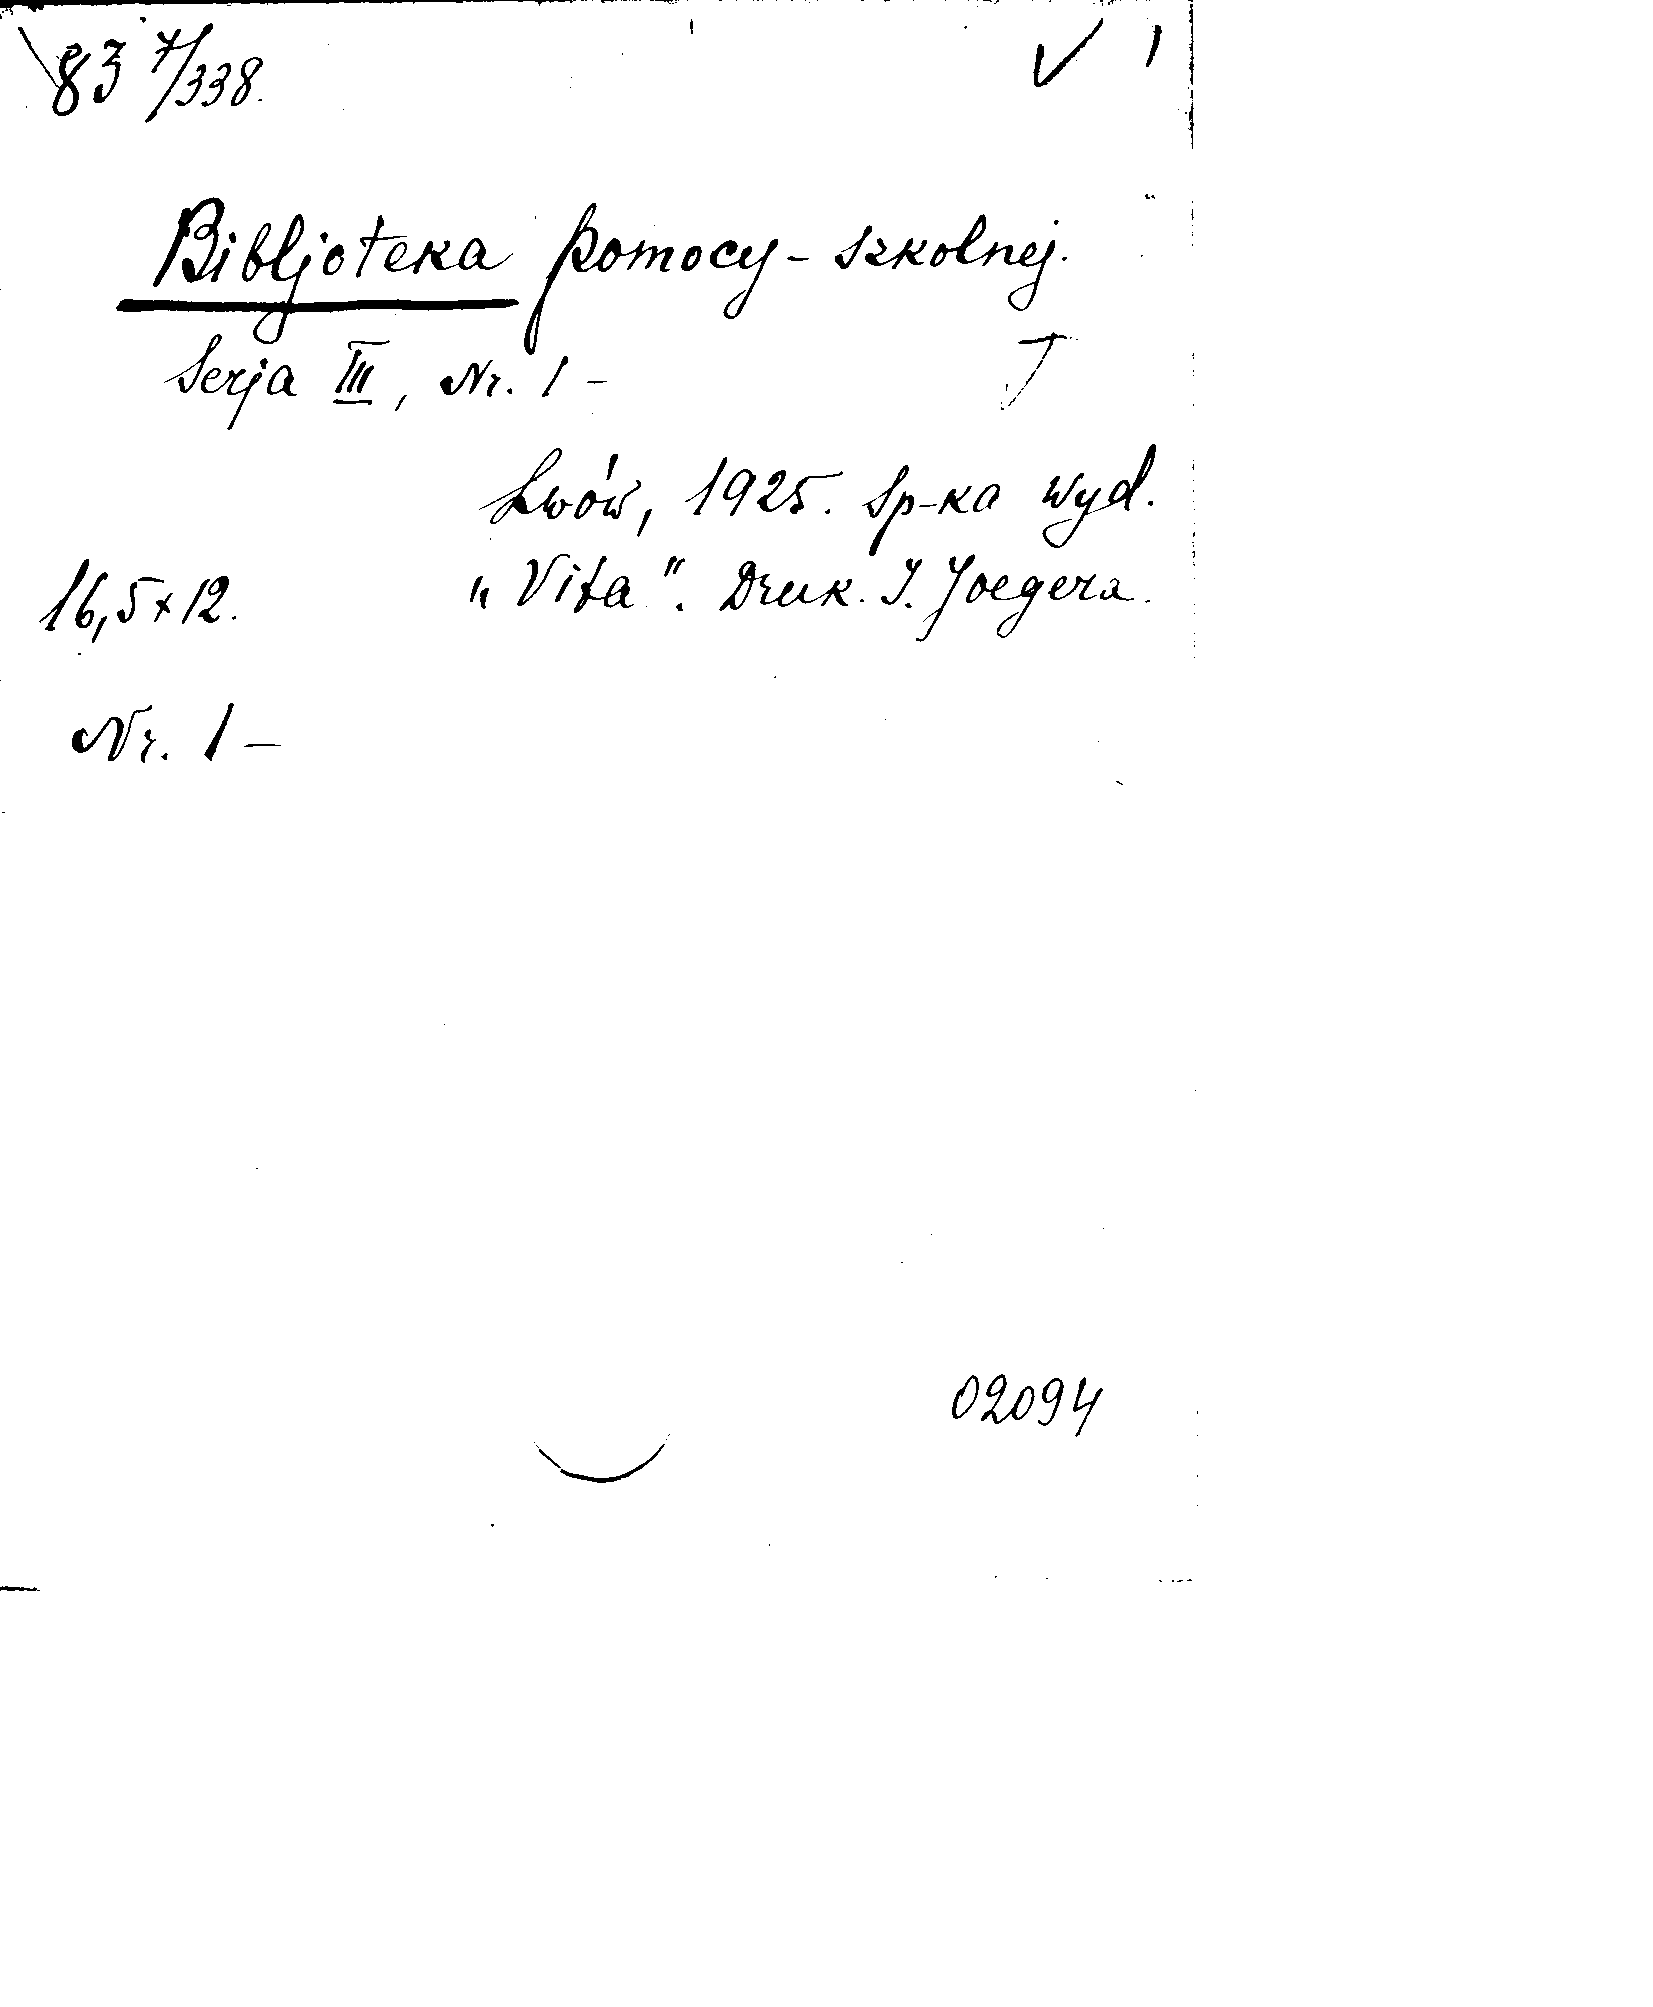 83 7/338.
Bibljoteka pomocy-szkolnej.
Serja III, Nr. 1 -
Lwów, 1925. Sp-ka wyd.
16,5x12. „Vita”. Druk. I. Joegera.
Nr. 1 -
02094